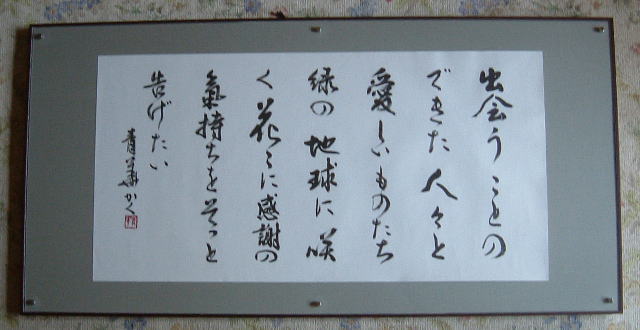 出会うことの
できた人々と
愛しいものたち
緑の地球に咲
く花々に感謝の
氣持ちをそっと
告げたい
青華かく